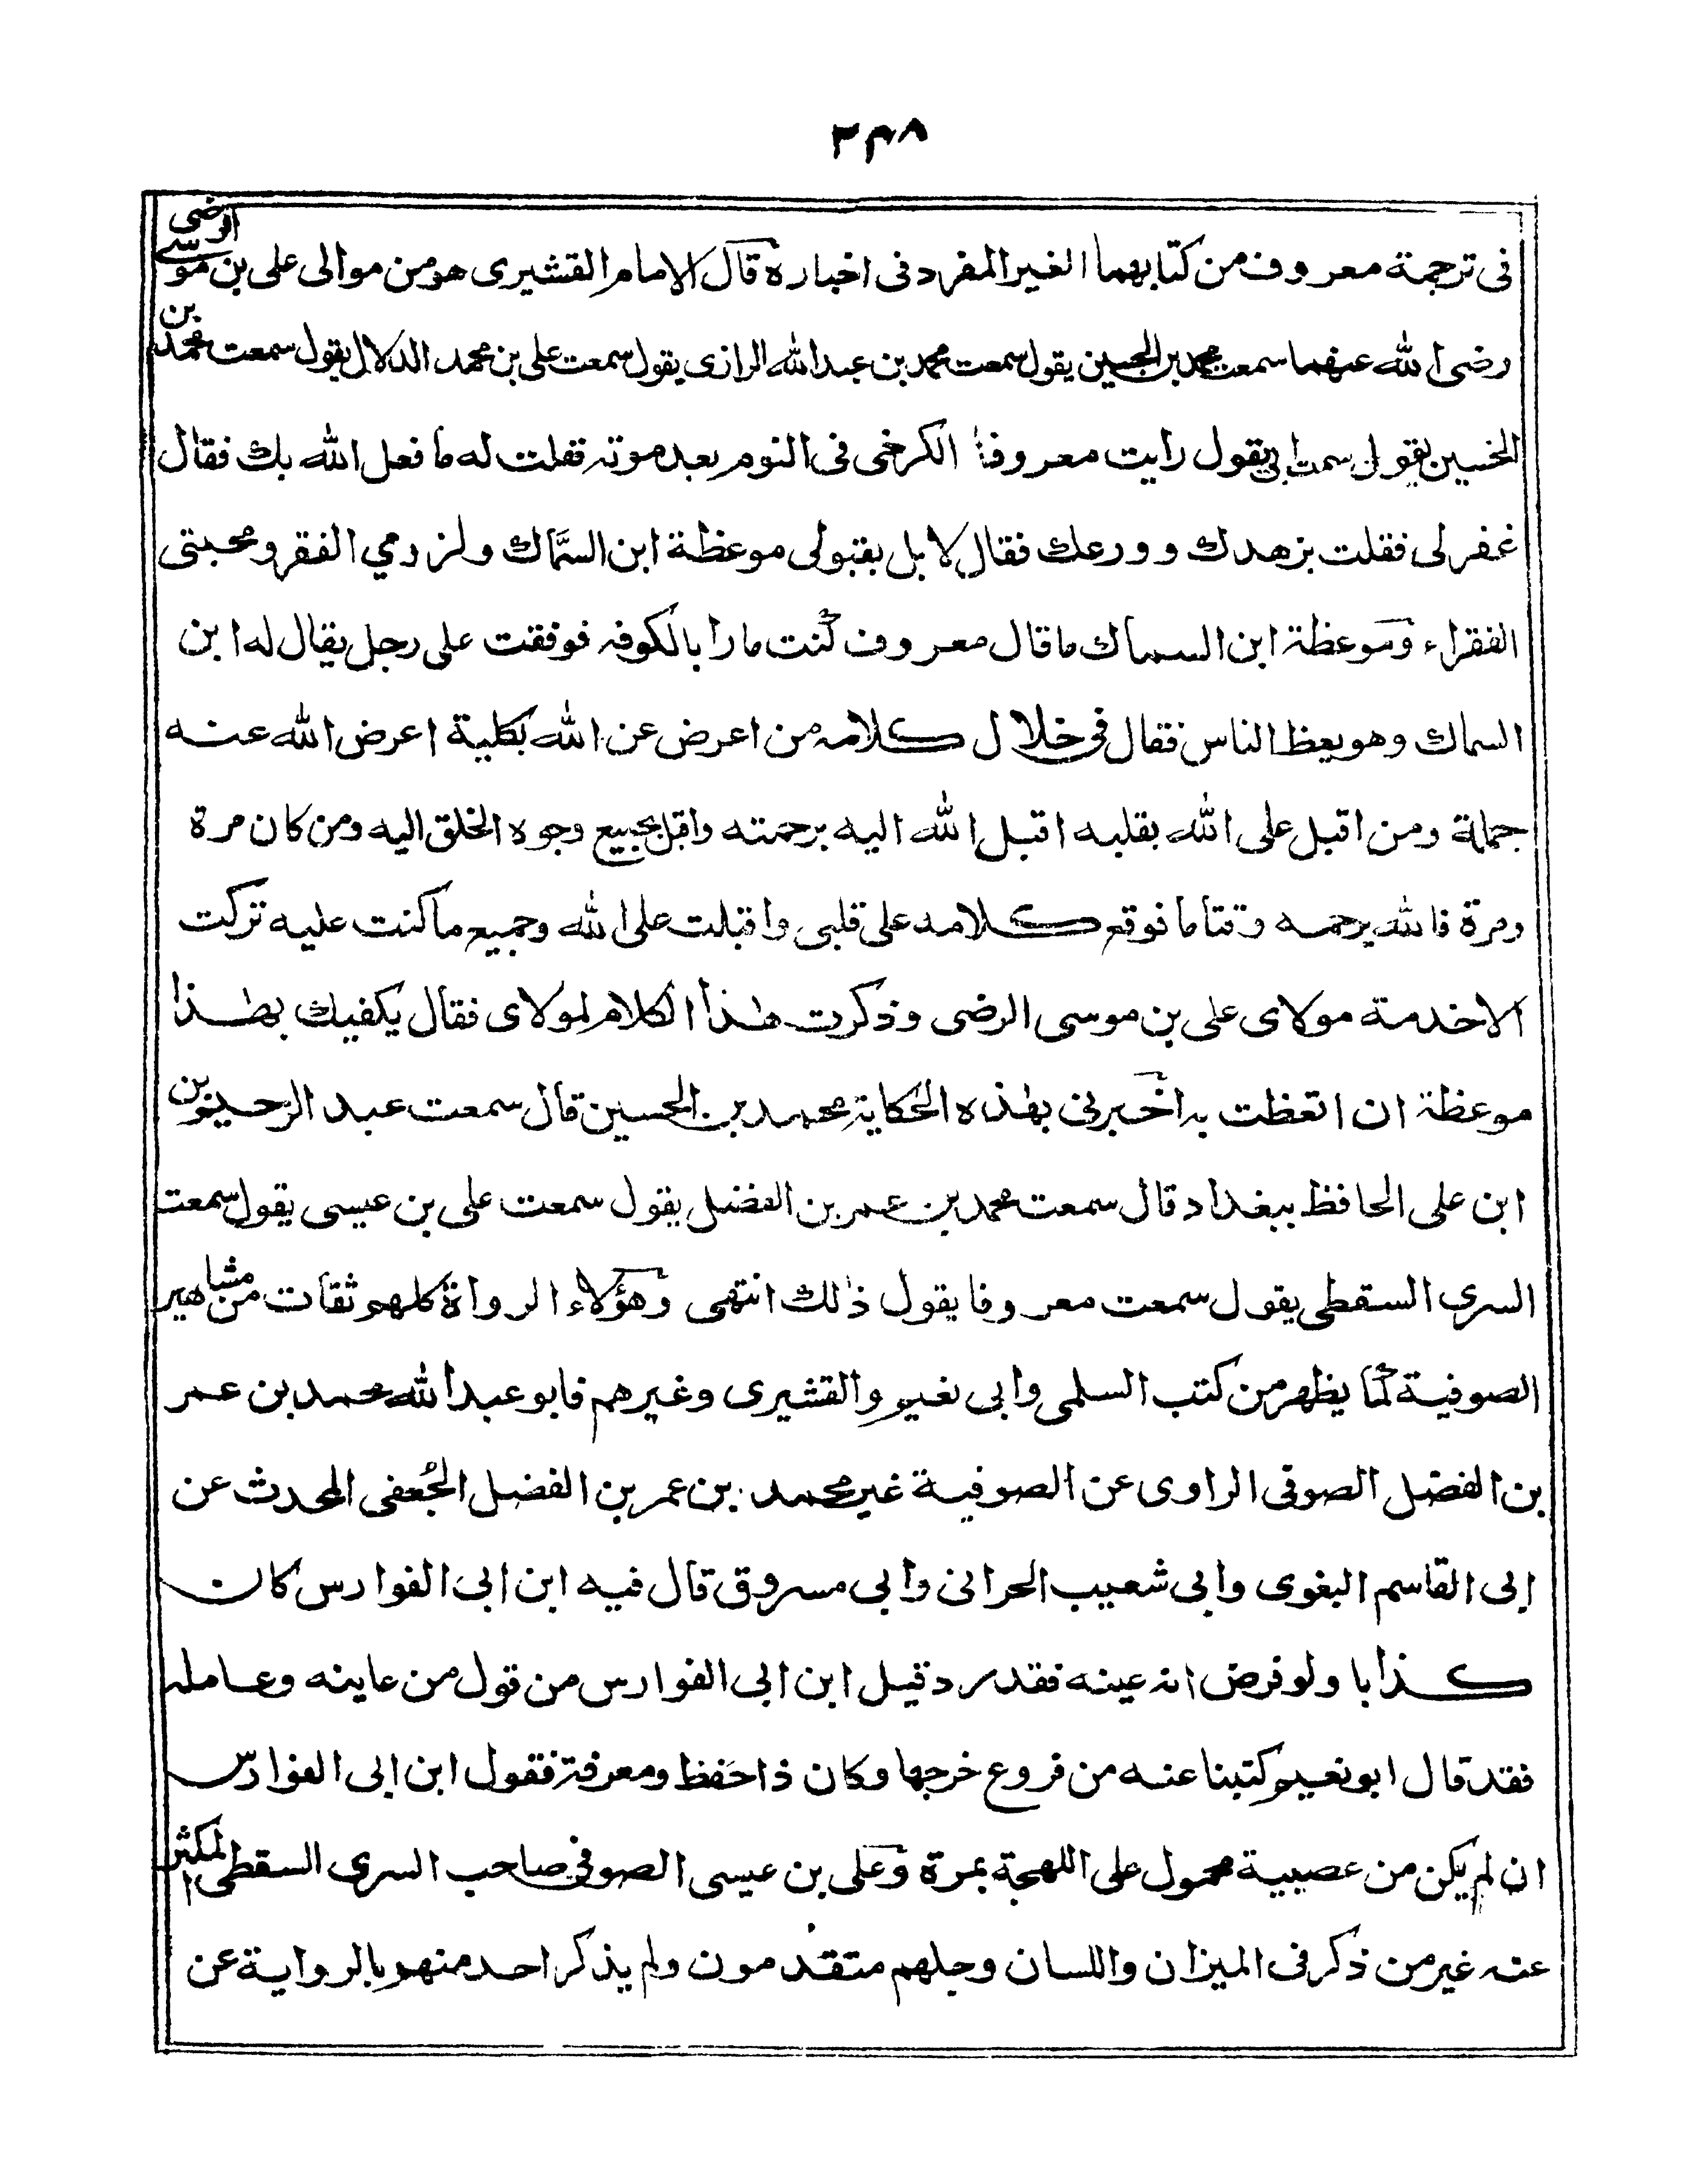 ٢٣٨
فى ترجمة معروف من كتابهما الغير المفرد فى اخباره قال الامام القشيرى هو من موالى على بن موسى الرضى
رضى الله عنهما سمعت محمد بن الحسين يقول سمعت محمد بن عبد الله الرازى يقول سمعت على بن محمد الدلال يقول سمعت محمد بن
الحسين يقول سمعت ابى يقول رايت معروفا الكرخى فى النوم بعد موته فقلت له ما فعل الله بك فقال
غفر لى فقلت بزهدك وورعك فقال لا بل بقبولى موعظة ابن السمّاك ولزومي الفقر ومحبتى
الفقراء وموعظة ابن السماك ما قال معروف كنت مارا بالكوفه فوقفت على رجل يقال له ابن
السماك وهو يعظ الناس فقال فى خلال كلامه من اعرض عن الله بكلية اعرض الله عنه
جملة ومن اقبل على الله بقلبه اقبل الله اليه برحمته واقبل بجميع وجوه الخلق اليه ومن كان مرة
ومرة فالله يرحمه وقتا ما فوقع كلامه على قلبى واقبلت على الله وجميع ما كنت عليه تركت
الاخدمة مولاى على بن موسى الرضى وذكرت هذا الكلام لمولاى فقال يكفيك بهذا
موعظة ان اتعظت به اخبرنى بهذه الحكاية محمد بن الحسين قال سمعت عبد الرحيم بن
ابن على الحافظ ببغداد قال سمعت محمد بن عمر بن الفضل يقول سمعت على بن عيسى يقول سمعت
السرى السقطى يقول سمعت معروفا يقول ذلك انتهى وهؤلاء الرواة كلهم ثقات من مشاهير
الصوفية كما يظهر من كتب السلمى وابى نعيم والقشيرى وغيرهم فابو عبد الله محمد بن عمر
بن الفضل الصوفى الراوى عن الصوفية غير محمد بن عمر بن الفضل الجُعفى المحدث عن
ابى القاسم البغوى وابى شعيب الحرانى وابى مسروق قال فيه ابن ابى الفوارس كان
كذابا ولو فرض انه عينه فقد رد قيل ابن ابى الفوارس من قول من عاينه وعامله
فقد قال ابو نعيم كتبنا عنه من فروع خرجها وكان ذا حفظ ومعرفة فقول ابن ابى الفوارس
ان لم يكن من عصبية محمول على اللهجة بمرة وعلى بن عيسى الصوفى صاحب السرى السقطى المكثر
عنه غير من ذكر فى الميزان واللسان وجلهم متقدمون ولم يذكر احد منهم بالرواية عن